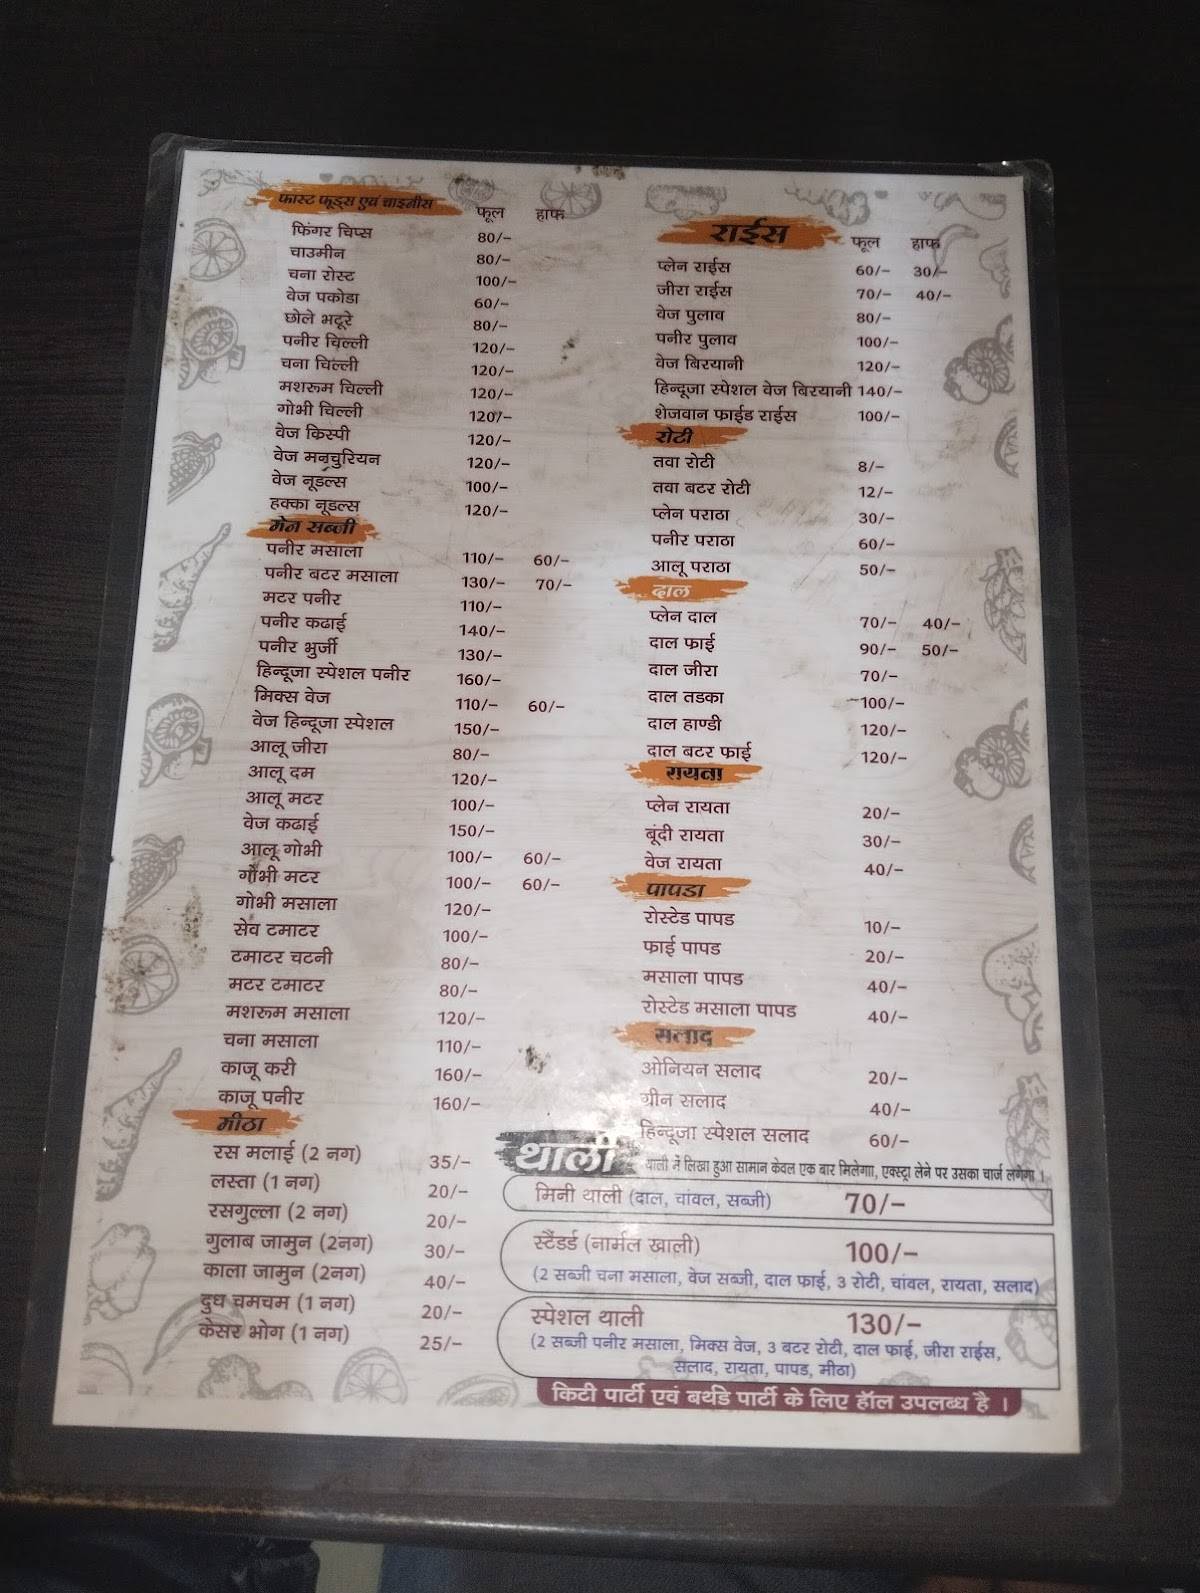 फास्ट फूड्स एवं चाइनीस फूल हाफ
फिंगर चिप्स 80/-
चाउमीन 80/-
चना रोस्ट 100/-
वेज पकोडा 60/-
छोले भटूरे 80/-
पनीर चिल्ली 120/-
चना चिल्ली 120/-
मशरूम चिल्ली 120/-
गोभी चिल्ली 120/-
वेज किस्पी 120/-
वेज मनचुरियन 120/-
वेज नूडल्स 100/-
हक्का नूडल्स 120/-
मेन सब्जी
पनीर मसाला 110/- 60/-
पनीर बटर मसाला 130/- 70/-
मटर पनीर 110/-
पनीर कढाई 140/-
पनीर भुर्जी 130/-
हिन्दूजा स्पेशल पनीर 160/-
मिक्स वेज 110/- 60/-
वेज हिन्दूजा स्पेशल 150/-
आलू जीरा 80/-
आलू दम 120/-
आलू मटर 100/-
वेज कढाई 150/-
आलू गोभी 100/- 60/-
गोभी मटर 100/- 60/-
गोभी मसाला 120/-
सेव टमाटर 100/-
टमाटर चटनी 80/-
मटर टमाटर 80/-
मशरूम मसाला 120/-
चना मसाला 110/-
काजू करी 160/-
काजू पनीर 160/-
मीठा
रस मलाई (2 नग) 35/-
लस्ता (1 नग) 20/-
रसगुल्ला (2 नग) 20/-
गुलाब जामुन (2नग) 30/-
काला जामुन (2नग) 40/-
दुध चमचम (1 नग) 20/-
केसर भोग (1 नग) 25/-
राईस फूल हाफ
प्लेन राईस 60/- 30/-
जीरा राईस 70/- 40/-
वेज पुलाव 80/-
पनीर पुलाव 100/-
वेज बिरयानी 120/-
हिन्दूजा स्पेशल वेज बिरयानी 140/-
शेजवान फाईड राईस 100/-
रोटी
तवा रोटी 8/-
तवा बटर रोटी 12/-
प्लेन पराठा 30/-
पनीर पराठा 60/-
आलू पराठा 50/-
दाल
प्लेन दाल 70/- 40/-
दाल फाई 90/- 50/-
दाल जीरा 70/-
दाल तडका 100/-
दाल हाण्डी 120/-
दाल बटर फाई 120/-
रायता
प्लेन रायता 20/-
बूंदी रायता 30/-
वेज रायता 40/-
पापडा
रोस्टेड पापड 10/-
फाई पापड 20/-
मसाला पापड 40/-
रोस्टेड मसाला पापड 40/-
सलाद
ओनियन सलाद 20/-
ग्रीन सलाद 40/-
हिन्दूजा स्पेशल सलाद 60/-
थाली थाली में लिखा हुआ सामान केवल एक बार मिलेगाा, एक्स्ट्रा लेने पर उसका चार्ज लगेगा ।
मिनी थाली (दाल, चांवल, सब्जी) 70/-
स्टैंडर्ड (नार्मल खाली) 100/-
(2 सब्जी चना मसाला, वेज सब्जी, दाल फाई, 3 रोटी, चांवल, रायता, सलाद)
स्पेशल थाली 130/-
(2 सब्जी पनीर मसाला, मिक्स वेज, 3 बटर रोटी, दाल फाई, जीरा राईस,
सलाद, रायता, पापड, मीठा)
किटी पार्टी एवं बर्थडे पार्टी के लिए हॉल उपलब्ध है ।